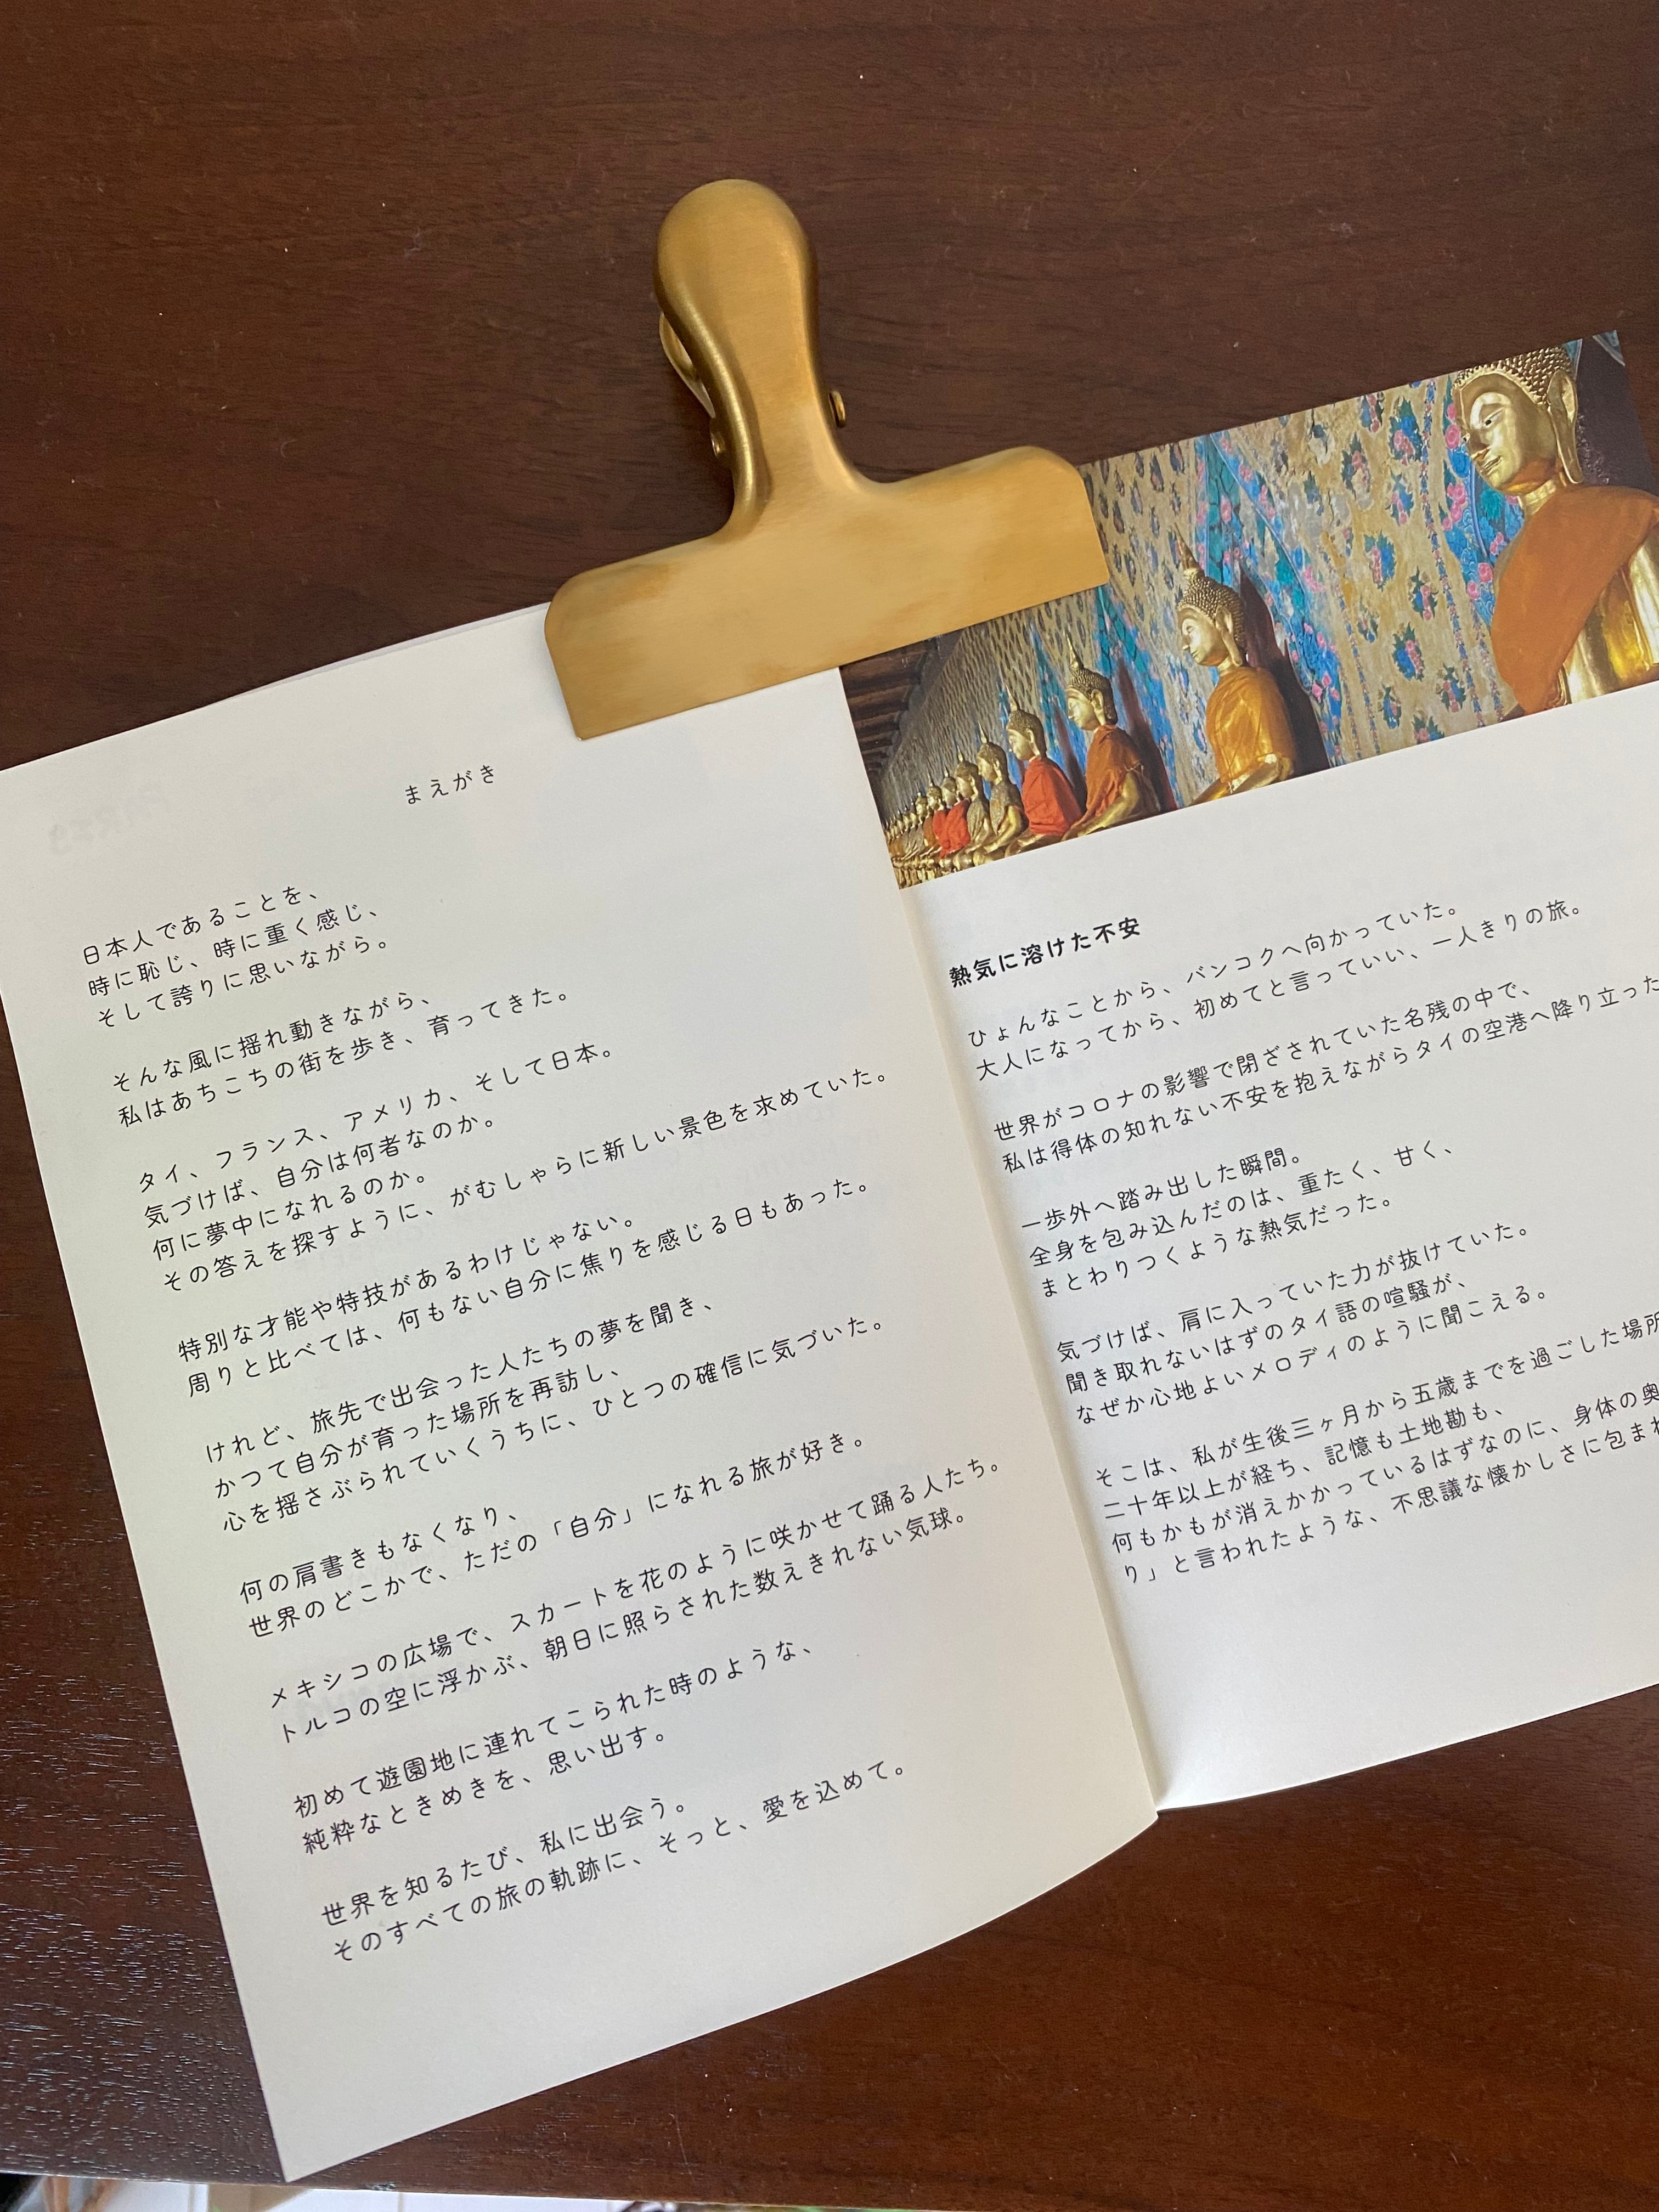 まえがき
日本人であることを、
時に恥じ、時に重く感じ、
そして誇りに思いながら。
そんな風に揺れ動きながら、
私はあちこちの街を歩き、育ってきた。
タイ、フランス、アメリカ、そして日本。
気づけば、自分は何者なのか。
何に夢中になれるのか。
その答えを探すように、がむしゃらに新しい景色を求めていた。
特別な才能や特技があるわけじゃない。
周りと比べては、何もない自分に焦りを感じる日もあった。
けれど、旅先で出会った人たちの夢を聞き、
かつて自分が育った場所を再訪し、
心を揺さぶられていくうちに、ひとつの確信に気づいた。
何の肩書きもなくなり、
世界のどこかで、ただの「自分」になれる旅が好き。
メキシコの広場で、スカートを花のように咲かせて踊る人たち。
トルコの空に浮かぶ、朝日に照らされた数えきれない気球。
初めて遊園地に連れてこられた時のような、
純粋なときめきを、思い出す。
世界を知るたび、私に出会う。
そのすべての旅の軌跡に、そっと、愛を込めて。
熱気に溶けた不安
ひょんなことから、バンコクへ向かっていた。
大人になってから、初めてと言っていい、一人きりの旅。
世界がコロナの影響で閉ざされていた名残の中で、
私は得体の知れない不安を抱えながらタイの空港へ降り立った
一歩外へ踏み出した瞬間。
全身を包み込んだのは、重たく、甘く、
まとわりつくような熱気だった。
気づけば、肩に入っていた力が抜けていた。
聞き取れないはずのタイ語の喧騒が、
なぜか心地よいメロディのように聞こえる。
そこは、私が生後三ヶ月から五歳までを過ごした場所
二十年以上が経ち、記憶も土地勘も、
何もかもが消えかかっているはずなのに、身体の奥
り」と言われたような、不思議な懐かしさに包まれ